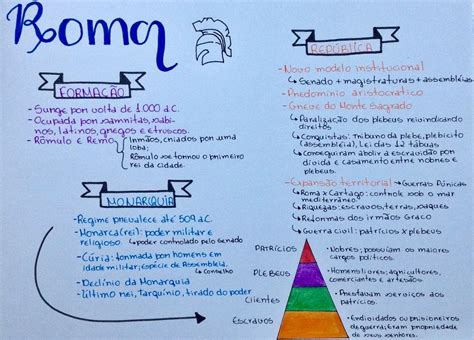 Roma
FORMAÇÃO
- Surge por volta de 1.000 a.C.
- Ocupada por samnitas, sabi-
nos, latinos, gregos e etruscos.
- Rômulo e Remo
Irmãos, criados por uma
loba;
Rômulo se tornou o primeiro
rei da cidade.
MONARQUIA
- Regime prevalece até 509 a.C.
- Monarca (rei): poder militar e
religioso.
poder controlado pelo Senado
- Cúria: formada por homens em
idade militar; espécie de Assembleia.
Conselho
- Declínio da Monarquia
- Último rei, Tarquínio, tirado do poder
REPÚBLICA
- Novo modelo institucional
Senado + magistraturas + assembléias
- Predomínio aristocrático
- Greve do Monte Sagrado
Paralização dos plebeus reivindicando
direitos
Conquistas: tribuno da plebe, plebicito
(assembléia), Lei das 12 tábuas
Conseguiram abolir a escravidão por
dívida e casamento entre nobres e
plebeus.
- Expansão territorial
Guerras Púnicas
Roma x Cartago: controle sob o mar
mediterrâneo
Riquezas: escravos, terras, saques
Reformas dos irmãos Graco
Guerra Civil: patrícios x plebeus
PATRÍCIOS
- Nobres; possuíam os maiores
cargos políticos.
PLEBEUS
- Homens livres; agricultores,
comerciantes e artesãos
CLIENTES
- Prestavam serviços aos
patrícios.
ESCRAVOS
- Endividados ou prisioneiros
de guerra; Eram propriedade
de seus senhores.